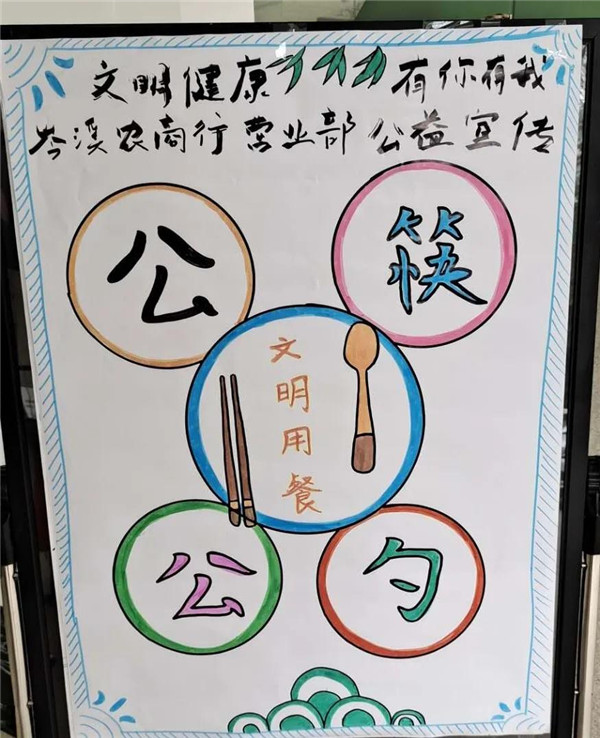 文明健康 有你有我
岑溪农商行营业部 公益宣传
公 筷
文明用餐
公 勺